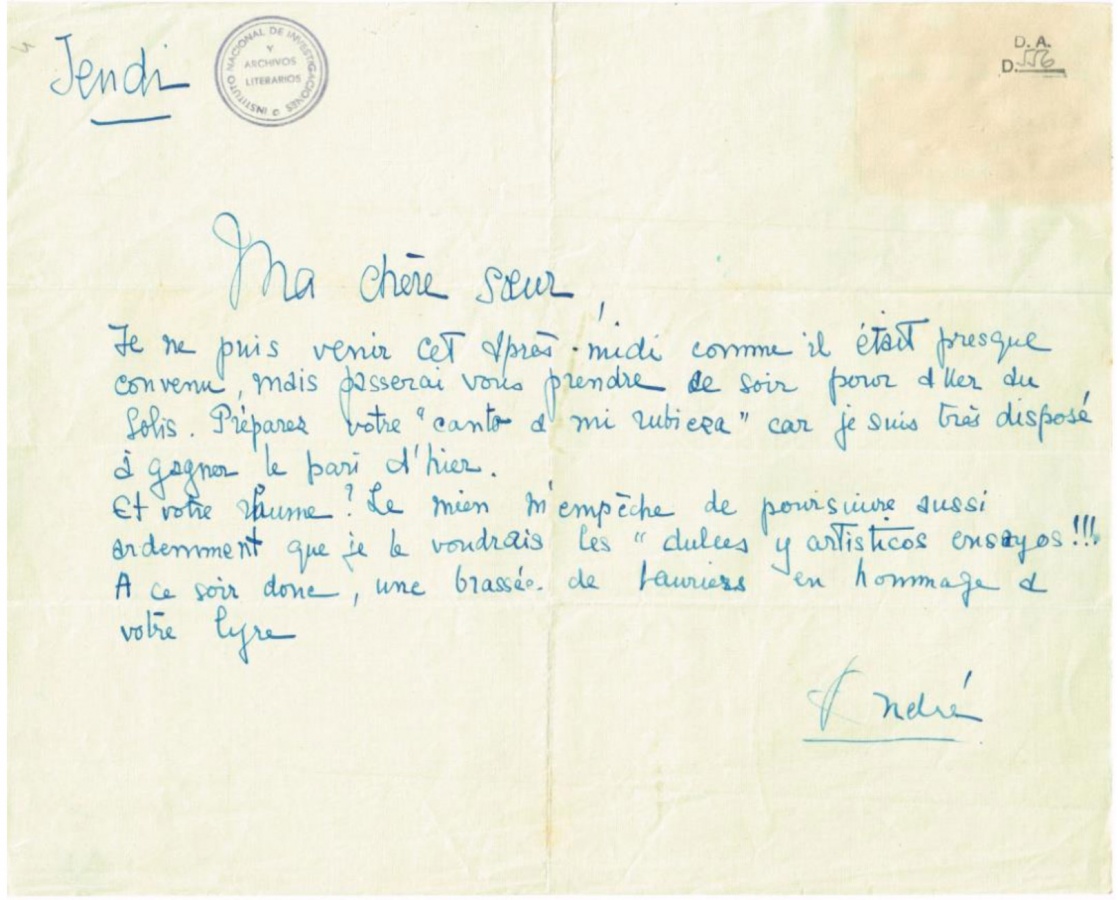 Jendi
INSTITUTO NACIONAL DE INVESTIGACIONES
Y
ARCHIVOS
LITERARIOS
D. A.
D. 556
Ma chère sœur,
Je ne puis venir cet après-midi comme il était presque
convenu, mais passerai vous prendre ce soir pour aller au
Solis. Préparez votre "canto a mi rubieza" car je suis très disposé
à gagner le pari d'hier.
Et votre rhume? Le mien m'empèche de poursuivre aussi
ardemment que je le voudrais les "dulces y artisticos ensayos!!!
A ce soir donc, une brassée de lauriers en hommage à
votre lyre
André